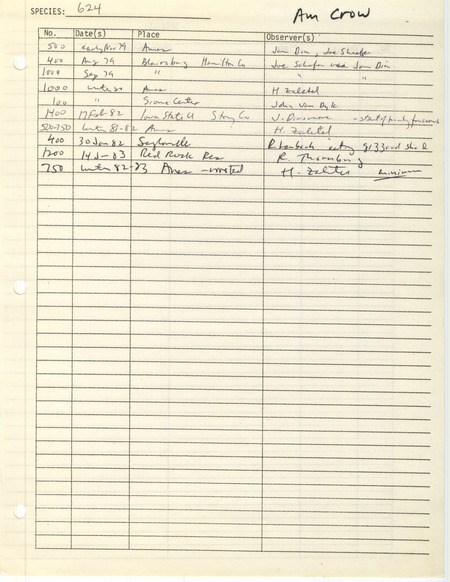 SPECIES: 624 Am Crow
No. Date(s) Place Observer(s)
500 early Nov 79 Ames Jim Din, Joe Shaefer
400 Aug 79 Blairsburg Hamilton Co Joe Schafer Jim Din
1000 Sep 79 " " "
1000 Ames H Zaletel
100 " Sioux Center John Van Dyk
1400 17 Feb 82 Iowa State U Story Co J. Dinsmore
500-750 wnter 81-82 Ames H. Zaletel
400 30 Jan 82 Saylorville
1200 14 J- 83 Red Rock Res R. Thornburg
750 wnter 82-83 Ames - roosted H. Zaletel minimum